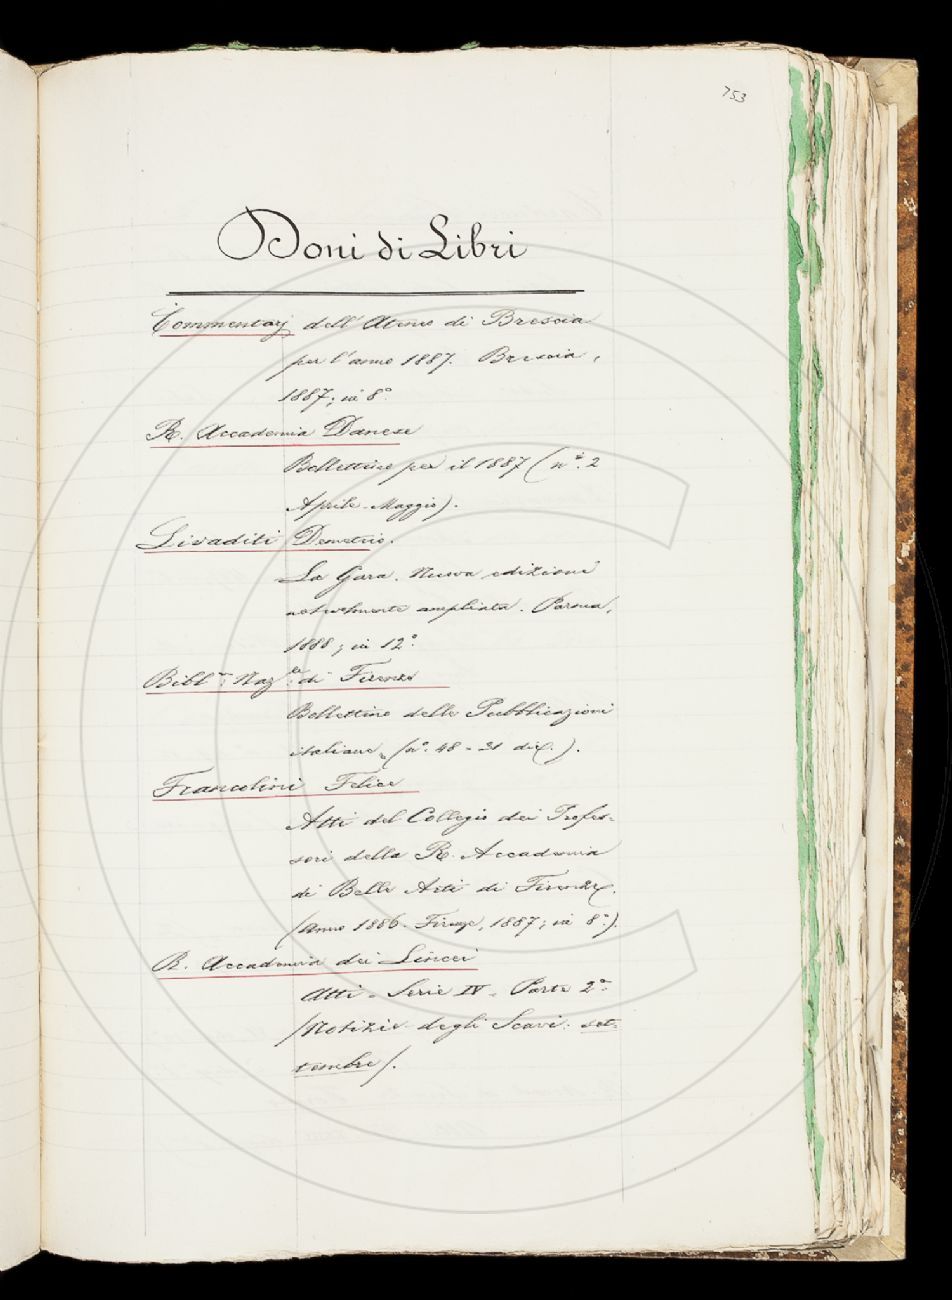 753
Doni di Libri
Commentarj dell' Ateneo di Brescia
per l'anno 1887. Brescia,
1887; in 8°
R. Accademia Danese
Bollettino per il 1887 (n° 2
Aprile-Maggio).
Livaditi Demetrio.
La Gara. Nuova edizione
notevolmente ampliata. Parma,
1888; in 12°
Bibl.ca Naz.le di Firenze
Bollettino delle Pubblicazioni
italiane (n°. 48 - 31 dic.).
Francolini Felice
Atti del Collegio dei Profes-
sori della R. Accademia
di Belle Arti di Firenze.
(anno 1886. Firenze, 1887; in 8°).
R. Accademia dei Lincei
Atti - Serie IV - Parte 2a
(Notizie degli Scavi: set-
tembre).